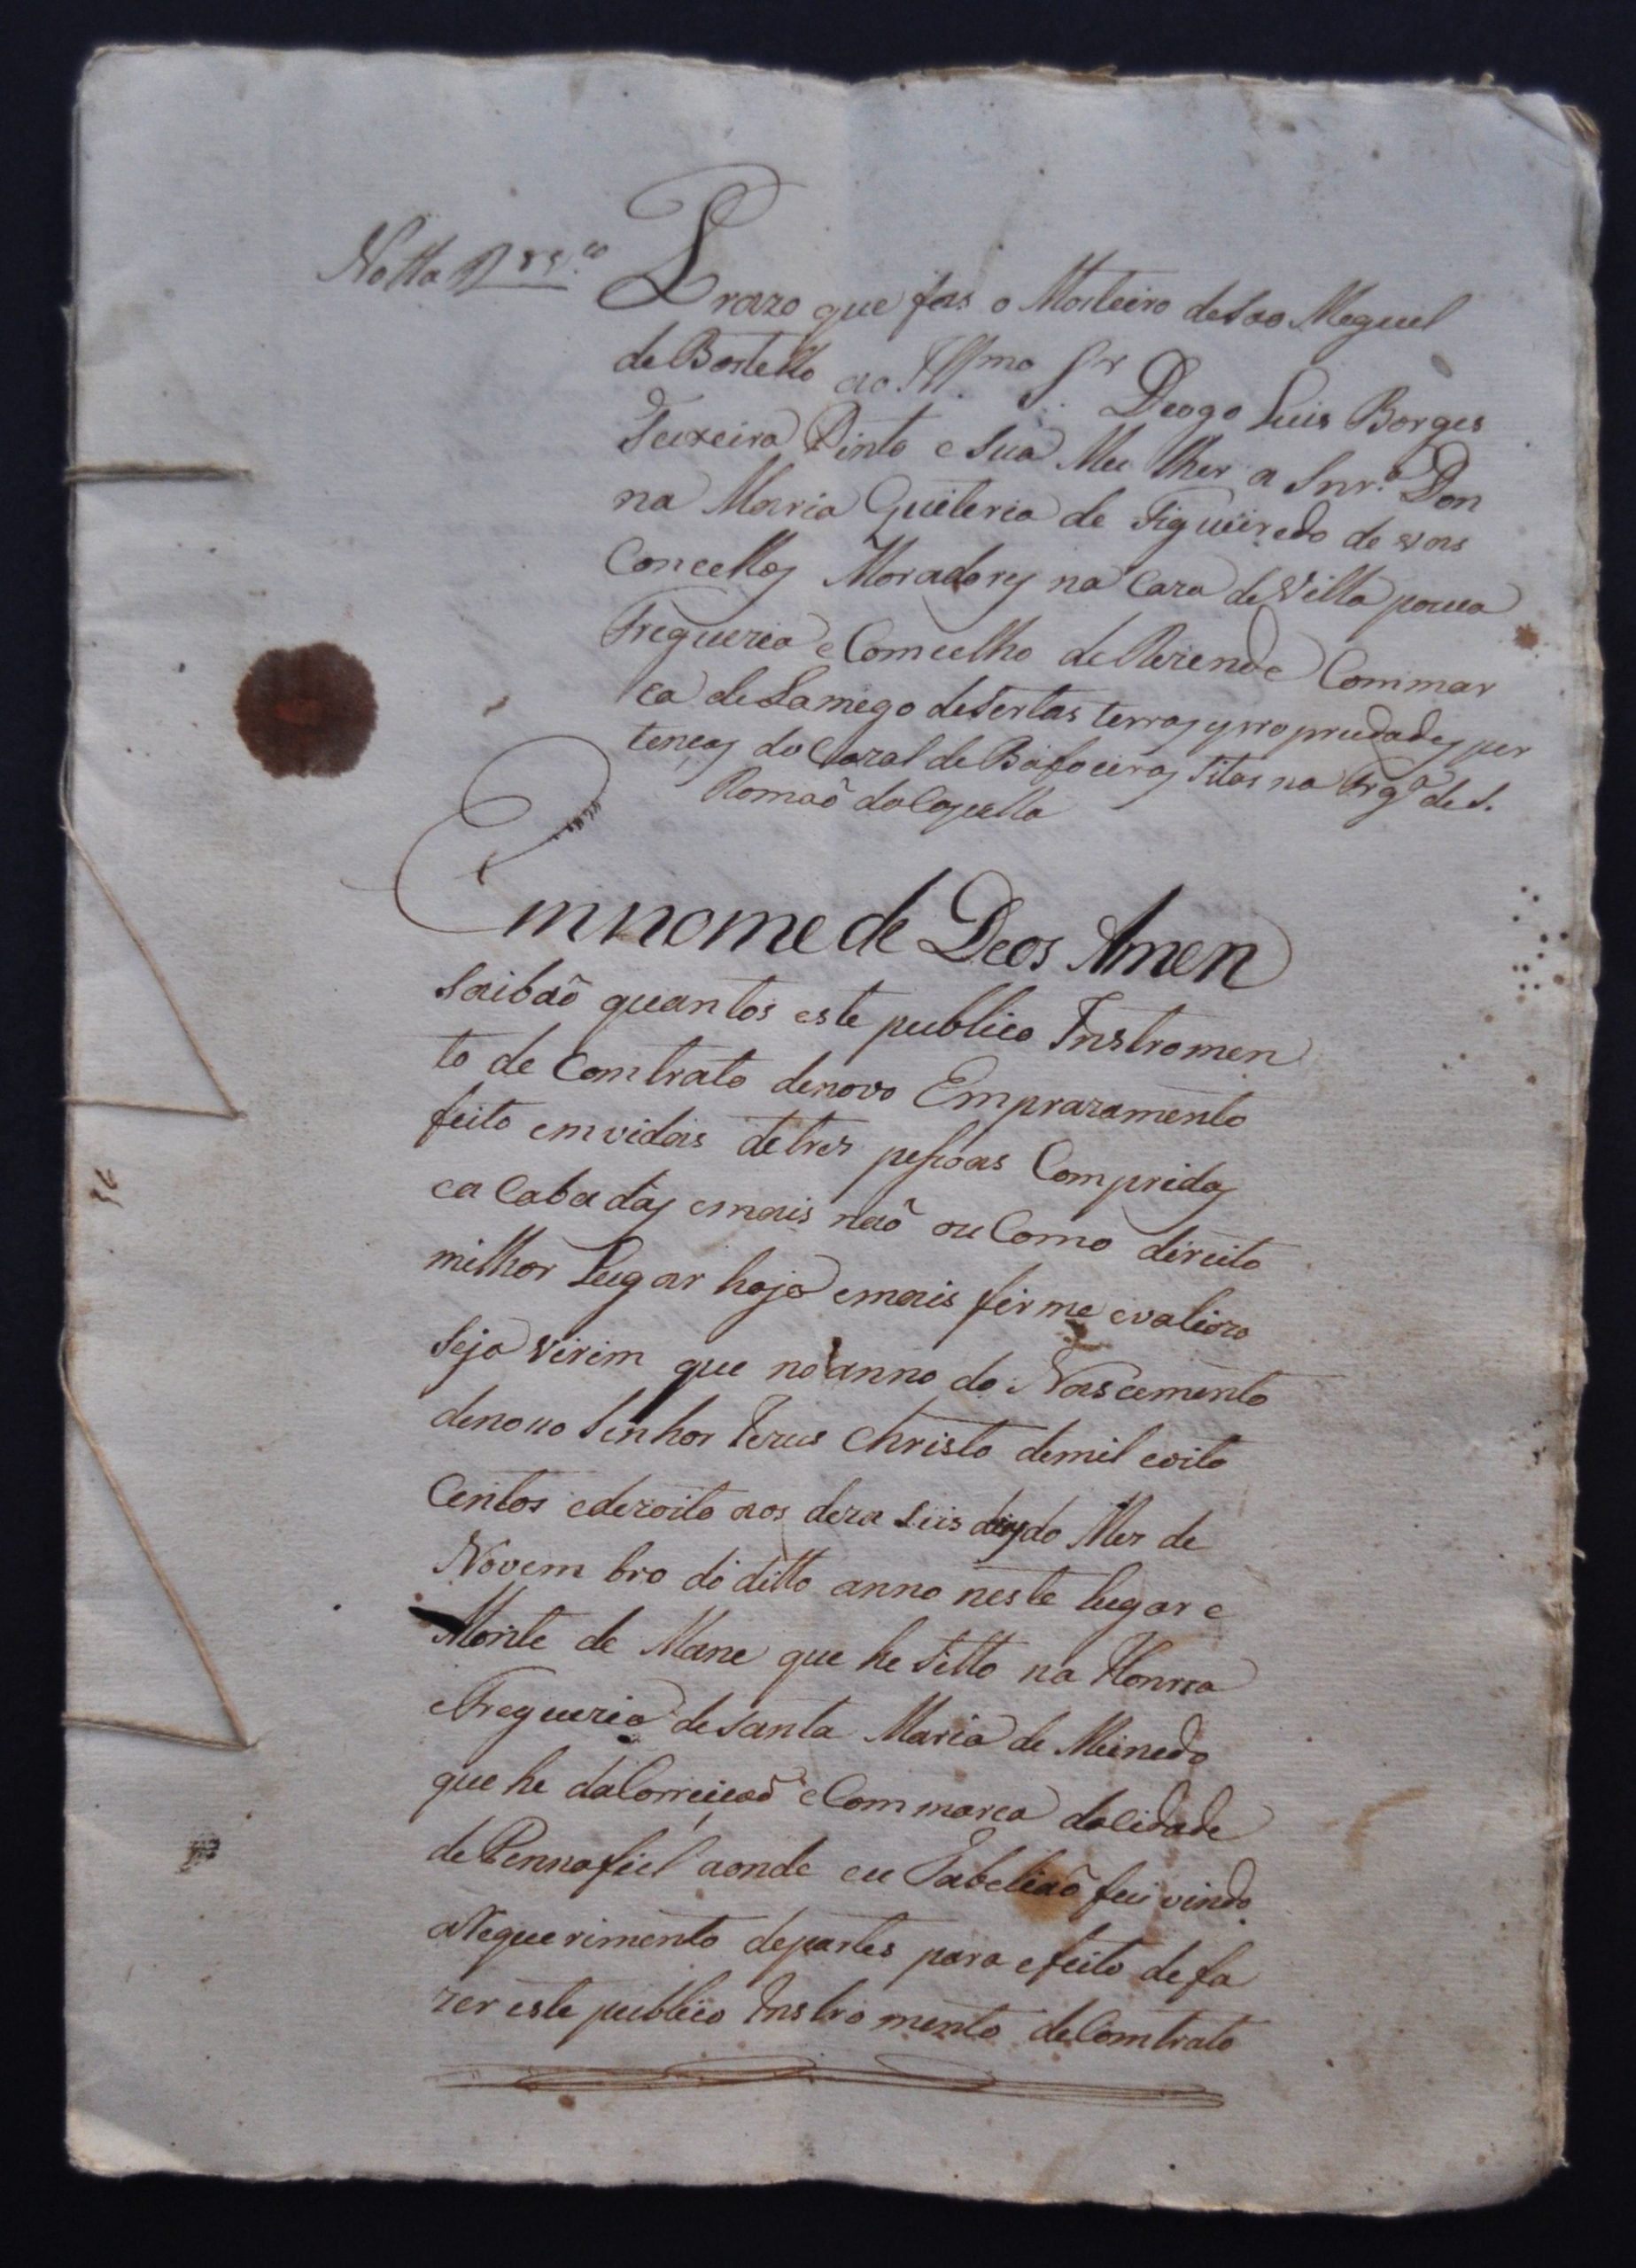 Notta
Prazo que fas o Mosteiro de Sao Meguel
de Bostello ao Illmo Sr. Deogo Luis Borges
Teixeira Pinto e Sua Mulher a Snr.ª Don
na Maria Quiteria de Figueiredo de Vas
Concellos Moradores na Caza de Villa pouca
Freguezia e Comcelho de Rezende Commar
ca de Lamego de Sertas terras y propriedades per
tencas do Cazal de Bafoeiras Sitas na Frgª de S.
Romaõ da Capella
Em nome de Deos Amen
Saibaõ quantos este publico Instromen
to de Comtrato de novo Emprazamento
feito em vidas de tres pessoas Compridas
ea Cabadas e mais naõ ou Como direito
milhor Lugar haja e mais firme e valiozo
Seja Virem que no anno do Nascemento
de nosso Senhor Jezus Christo de mil e oito
Centos e dezoito aos deza seis dias do Mez de
Novembro do ditto anno neste lugar e
Monte de Mane que he Sitto na Honrra
e Freguezia de Santa Maria de Meinedo
que he da Correiçaõ e Commarca da Cidade
de Pennafiel aonde eu Tabeliaõ fui vindo
a Requerimento de partes para efeito de fa
zer este publico Instromento de Comtrato